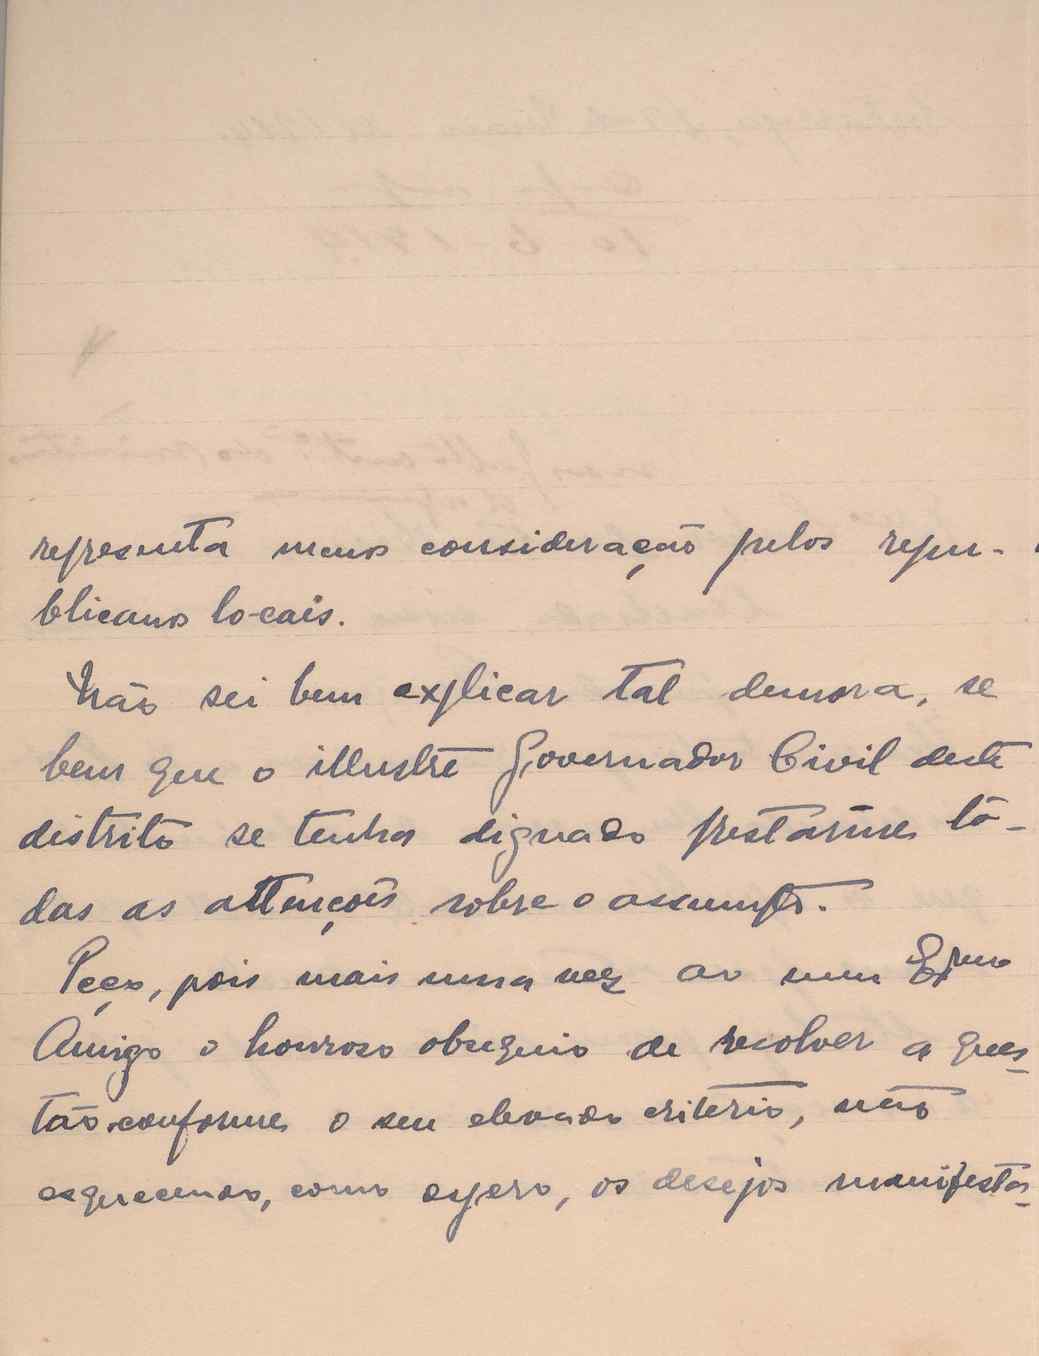 representa menos consideração pelos repu-
blicanos locais.
Não sei bem explicar tal demora, se
bem que o illustre Governador Civil deste
distrito se tenha dignado prestar-me tô-
das as attenções sobre o assumpto.
Peço, pois mais uma vez ao meu Exmo
Amigo o honroso obsequio de resolver a ques-
tão conforme o seu elevado criterio, não
esquecendo, como espero, os desejos manifesta-